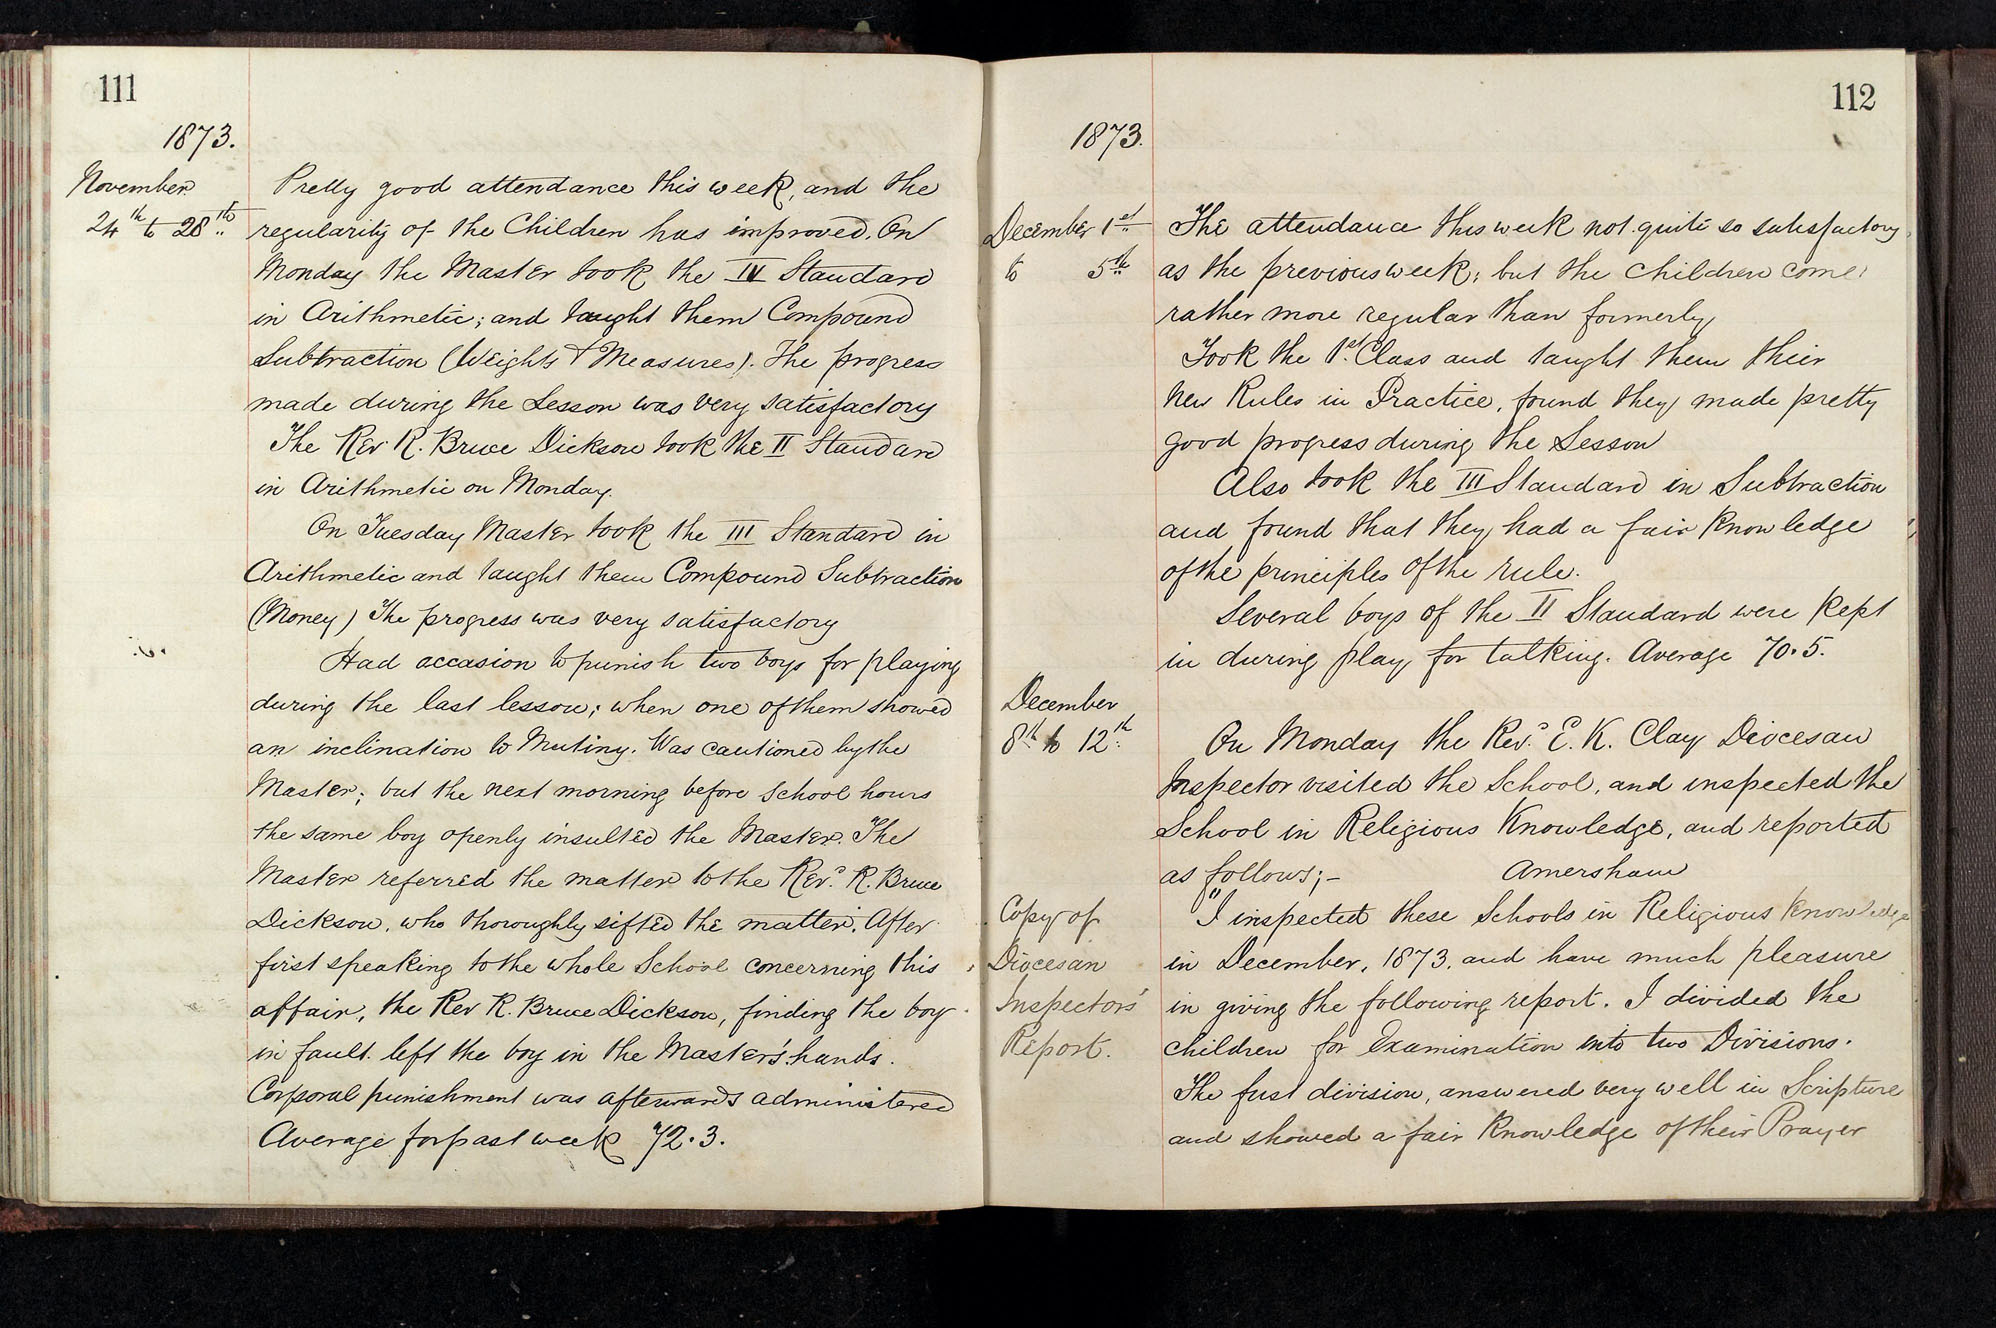 111
1873.
November
24th to 28th
Pretty good attendance this week, and the
regularity of the Children has improved. On
Monday the Master took the IV Standard
in Arithmetic; and taught them Compound
Subtraction (Weights & Measures). The progress
made during the Lesson was very satisfactory
The Rev R. Bruce Dickson took the II Standard
in Arithmetic on Monday.
On Tuesday Master took the III Standard in
Arithmetic and taught them Compound Subtraction
(Money) The progress was very satisfactory
Had occasion to punish two boys for playing
during the last lesson; when one of them showed
an inclination to Mutiny. Was cautioned by the
Master; but the next morning before School hours
the same boy openly insulted the Master. The
Master referred the matter to the Revd. R. Bruce
Dickson, who thoroughly sifted the matter. After
first speaking to the whole School concerning this
affair, the Rev R. Bruce Dickson, finding the boy
in fault. left the boy in the Master's hands.
Corporal punishment was afterwards administered
Average for past week 72.3.
112
1873.
December 1st
to 5th
The attendance this week not quite so satisfactory
as the previous week; but the children come
rather more regular than formerly
Took the 1st Class and taught them their
New Rules in Practice, found they made pretty
good progress during the Lesson
Also took the III Standard in Subtraction
and found that they had a fair knowledge
of the principles of the rule.
Several boys of the II Standard were kept
in during play for talking. Average 70.5.
December
8th to 12th
On Monday the Revd. E. K. Clay Diocesan
Inspector visited the School, and inspected the
School in Religious Knowledge, and reported
as follows;- Amersham
Copy of
Diocesan
Inspectors'
Report.
"I inspected these Schools in Religious Knowledge
in December, 1873. and have much pleasure
in giving the following report. I divided the
children for Examination into two Divisions.
The first division, answered very well in Scripture
and showed a fair knowledge of their Prayer